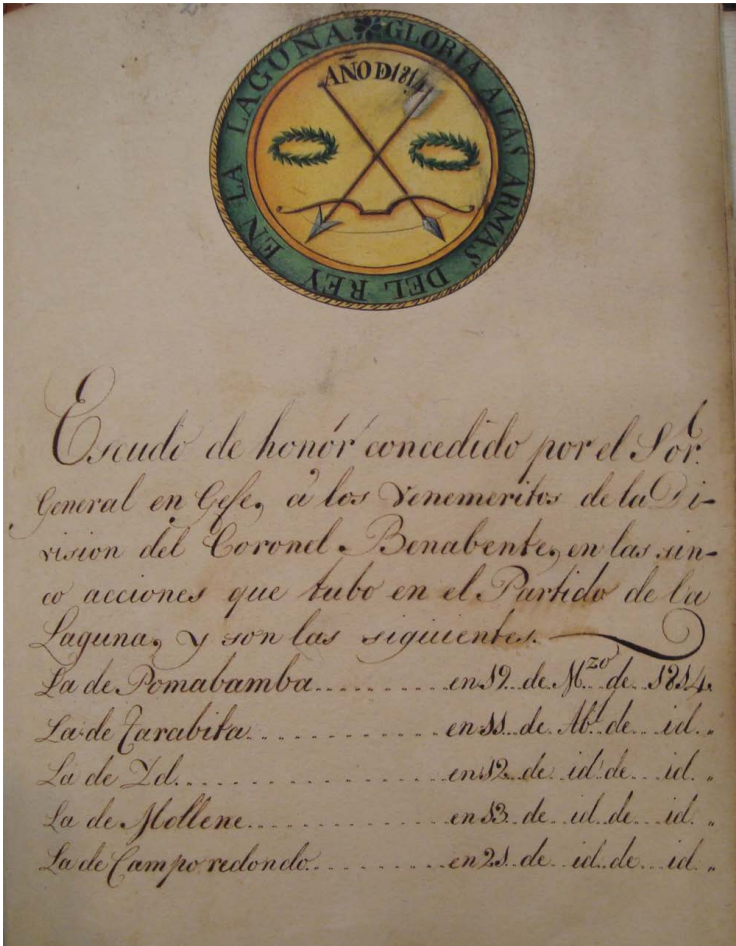 GLORIA A LAS ARMAS DEL REY EN LA LAGUNA.
AÑO D 1814
Escudo de honór concedido por el Sor.
General en Gefe, à los Venemeritos de la Di-
vision del Coronel Benabente, en las sin-
co acciones que tubo en el Partido de la
Laguna, y son las siguientes.
La de Pomabamba......... en 19. de Mzo de 1814.
La de Tarabita............ en 11. de Abl. de id. „
La de Yd................ en 12. de id. de id. „
La de Mollene............ en 13. de id. de id. „
La de Campo redondo......... en 21 de id. de id „